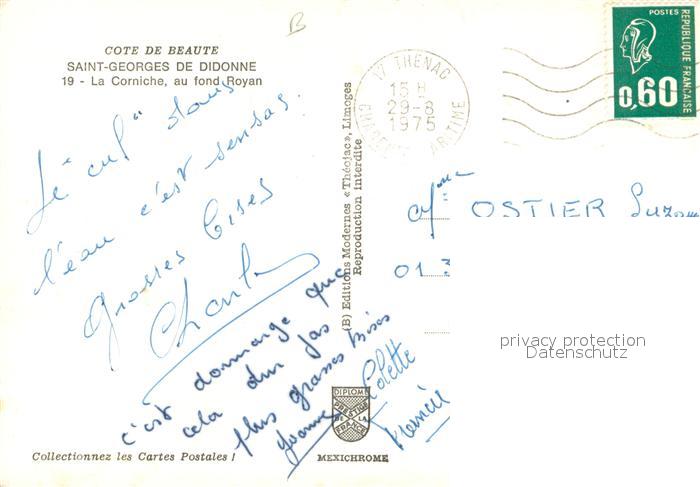 B
COTE DE BEAUTE
SAINT-GEORGES DE DIDONNE
19 - La Corniche, au fond Royan
Le "cul" dans
l'eau c'est sensas.
Grosses bises
c'est dommage que
cela dur pas
plus grosses bises
Yvonne
Colette
(B) Editions Modernes « Théojac », Limoges
Reproduction interdite
17 THENAC
15 H
29-8
1975
CHARENTE MARITIME
POSTES
REPUBLIQUE FRANÇAISE
0,60
Mme OSTIER Suzanne
01
privacy protection
Datenschutz
DIPLOME
PRESTIGE
DE LA
FRANCE
Collectionnez les Cartes Postales !
MEXICHROME